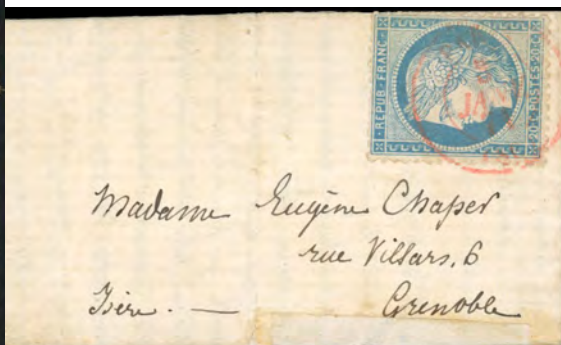 REPUB. FRANC.
20 C. POSTES 20 C.
JAN
Madame Eugène Chaper
rue Villars, 6
Isère. — Grenoble